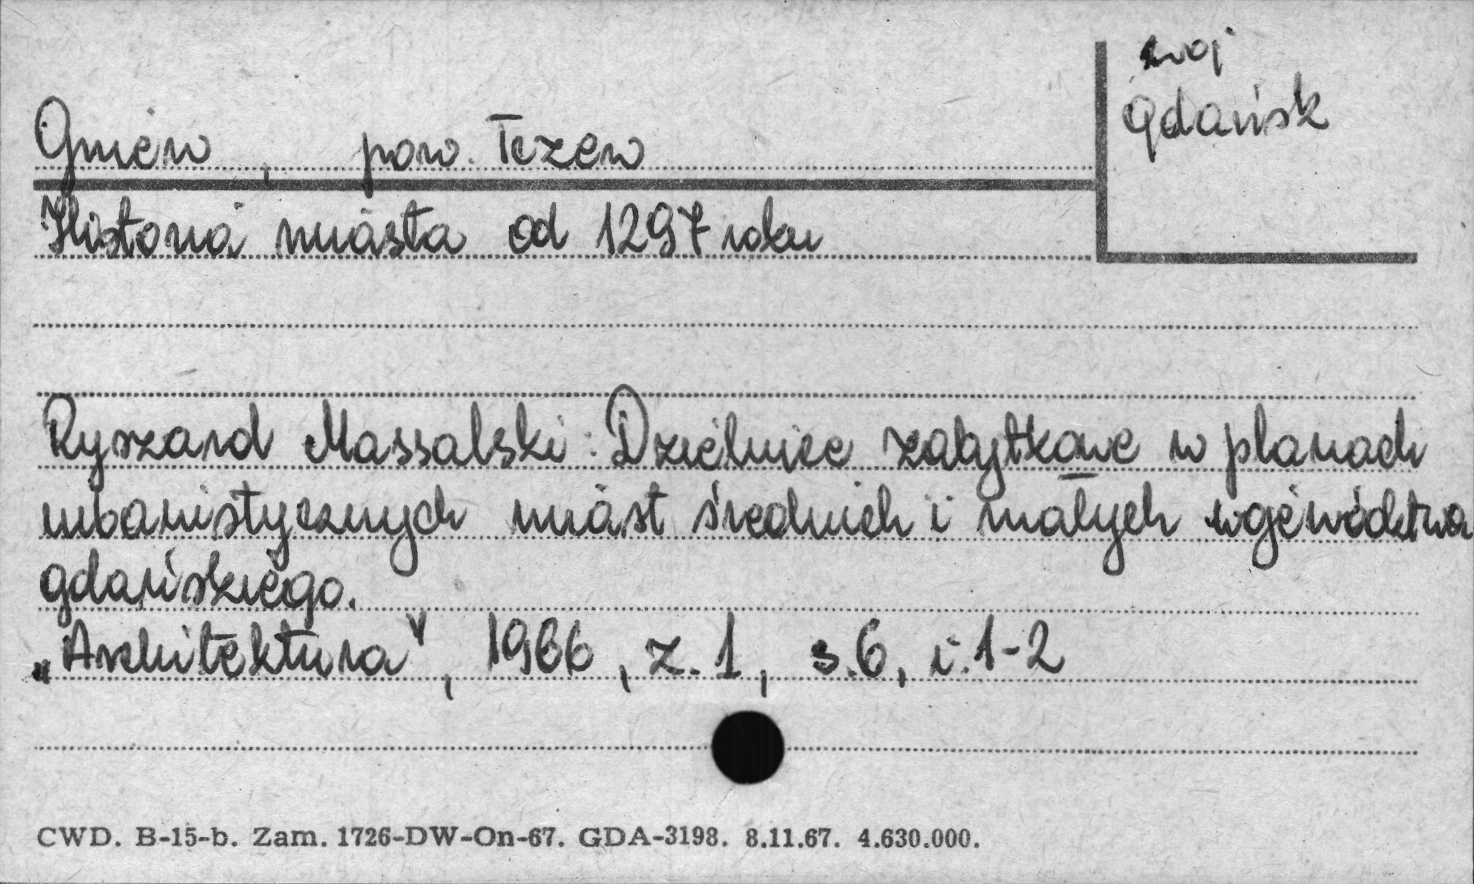 woj
Gdańsk
Gniew, pow. Tczew
Historia miasta od 1297 roku
Ryszard Massalski: Dzielnice zabytkowe w planach
urbanistycznych miast średnich i małych województwa
gdańskiego.
„Architektura”, 1966, z. 1, s. 6, i. 1-2
CWD. B-15-b. Zam. 1726-DW-On-67. GDA-3198. 8.11.67. 4.630.000.